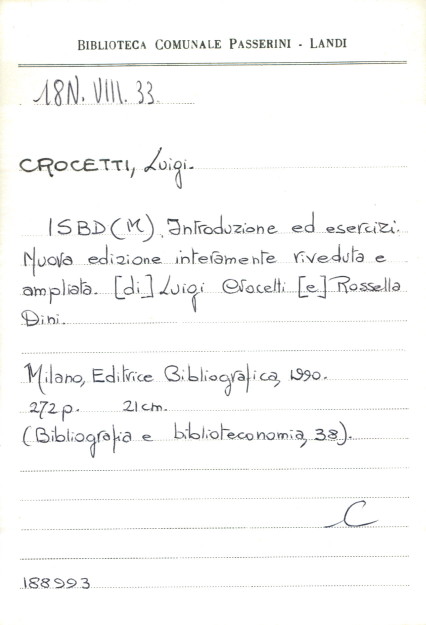 BIBLIOTECA COMUNALE PASSERINI - LANDI
18N. VIII. 33.
CROCETTI, Luigi.
ISBD(M). Introduzione ed esercizi.
Nuova edizione interamente riveduta e
ampliata. [di] Luigi Crocetti [e] Rossella
Dini.
Milano, Editrice Bibliografica, 1990.
272 p. 21 cm.
(Bibliografia e biblioteconomia, 38).
C
188993